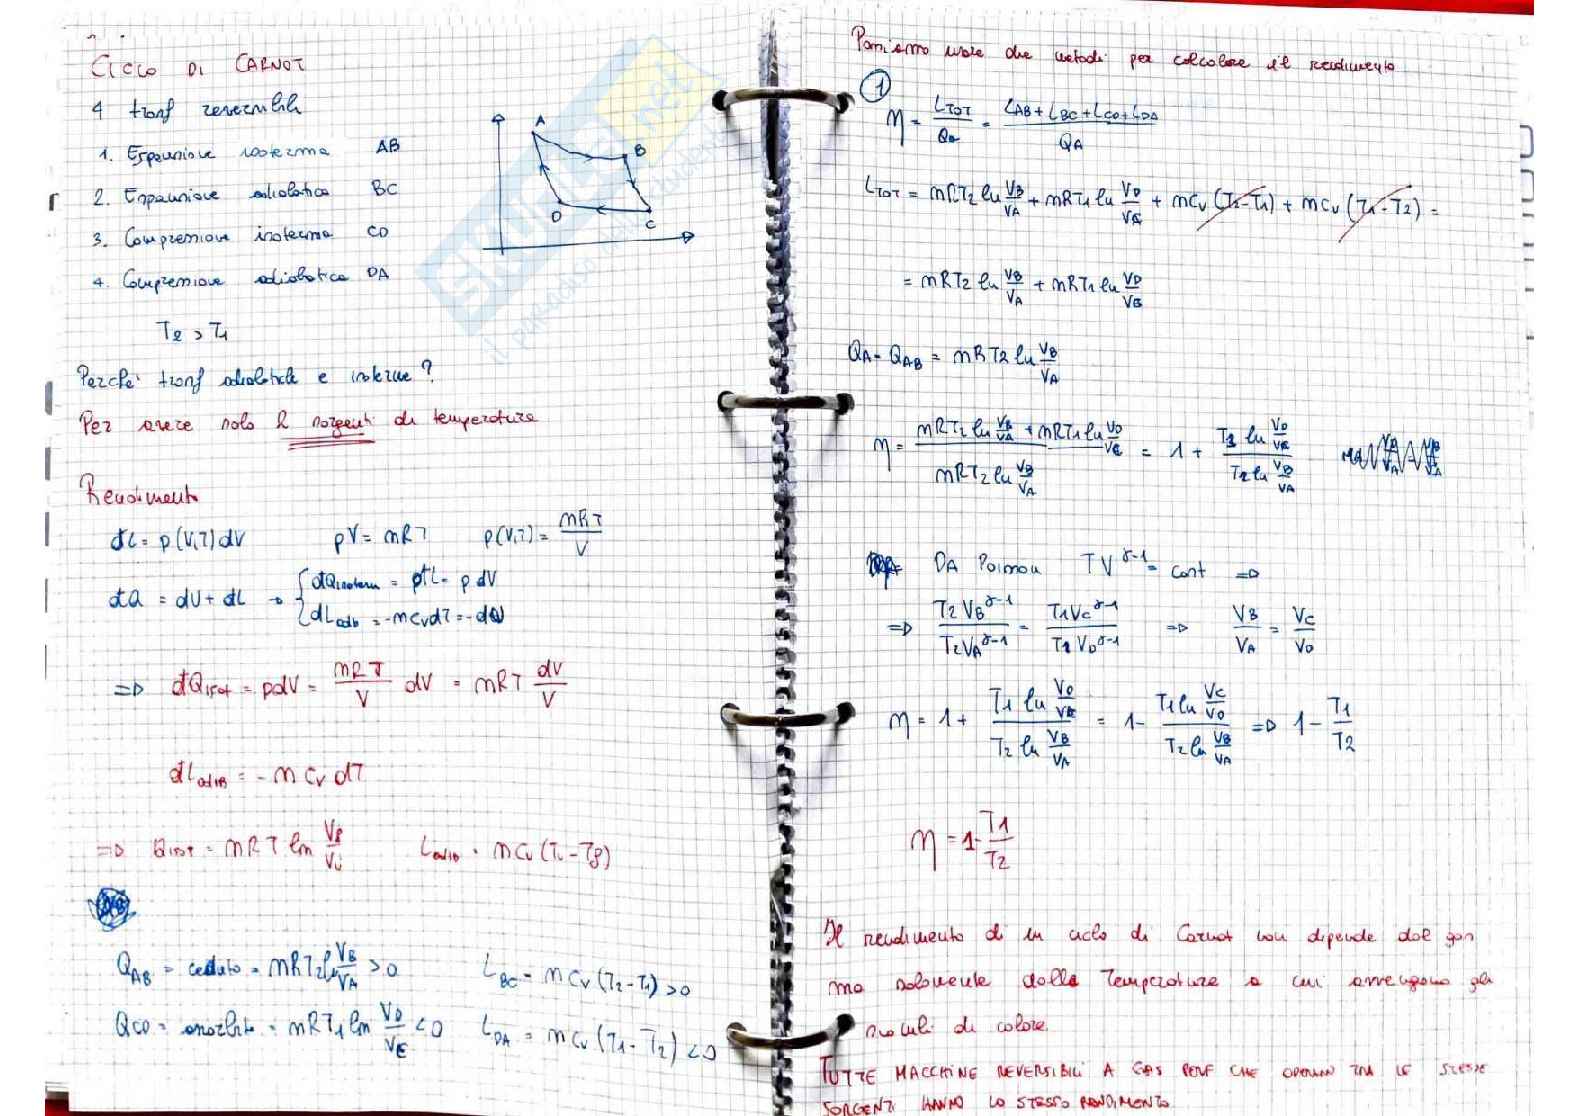 CICLO DI CARNOT
4 trasf reversibili
1. Espansione isoterma AB
2. Espansione adiabatica BC
3. Compressione isoterma CD
4. Compressione adiabatica DA
A
B
D
C
T2 > T1
Perche' trasf adiabatiche e isoterme?
Per avere solo 2 sorgenti di temperatura
Rendimento
đL = p(V,T)dV pV = nRT p(V,T) = nRT/V
đQ = dU + đL → { đQisoterm = đL = pdV
đLadib = -nCvdT = -dU
=> đQisot = pdV = nRT/V dV = nRT dV/V
đLadiab = -nCvdT
=> Qisot = nRT ln Vf/Vi Ladiab = nCv(Ti-Tf)
QAB = ceduto = nRT2 ln VB/VA > 0 LBC = nCv(T2-T1) > 0
QCD = assorbito = nRT1 ln VD/VC < 0 LDA = nCv(T1-T2) < 0
Possiamo usare due metodi per calcolare il rendimento
1
η = LTOT/QA = LAB+LBC+LCD+LDA/QA
LTOT = nRT2 ln VB/VA + nRT1 ln VD/VC + nCv(T2-T1) + nCv(T1-T2) =
= nRT2 ln VB/VA + nRT1 ln VD/VC
QA = QAB = nRT2 ln VB/VA
η = nRT2 ln VB/VA + nRT1 ln VD/VC / nRT2 ln VB/VA = 1 + T1 ln VD/VC / T2 ln VB/VA
DA Poisson TV^γ-1 = cost =>
=> T2VB^γ-1/T2VA^γ-1 = T1VC^γ-1/T1VD^γ-1 => VB/VA = VC/VD
η = 1 + T1 ln VD/VC / T2 ln VB/VA = 1 - T1 ln VC/VD / T2 ln VB/VA => 1 - T1/T2
η = 1 - T1/T2
Il rendimento di un ciclo di Carnot non dipende dal gas
ma solamente dalla Temperatura a cui avvengono gli
scambi di calore.
TUTTE MACCHINE REVERSIBILI A GAS PERF CHE OPERANO TRA LE STESSE
SORGENTI HANNO LO STESSO RENDIMENTO
SKUOLA.net
il paradiso dello studente